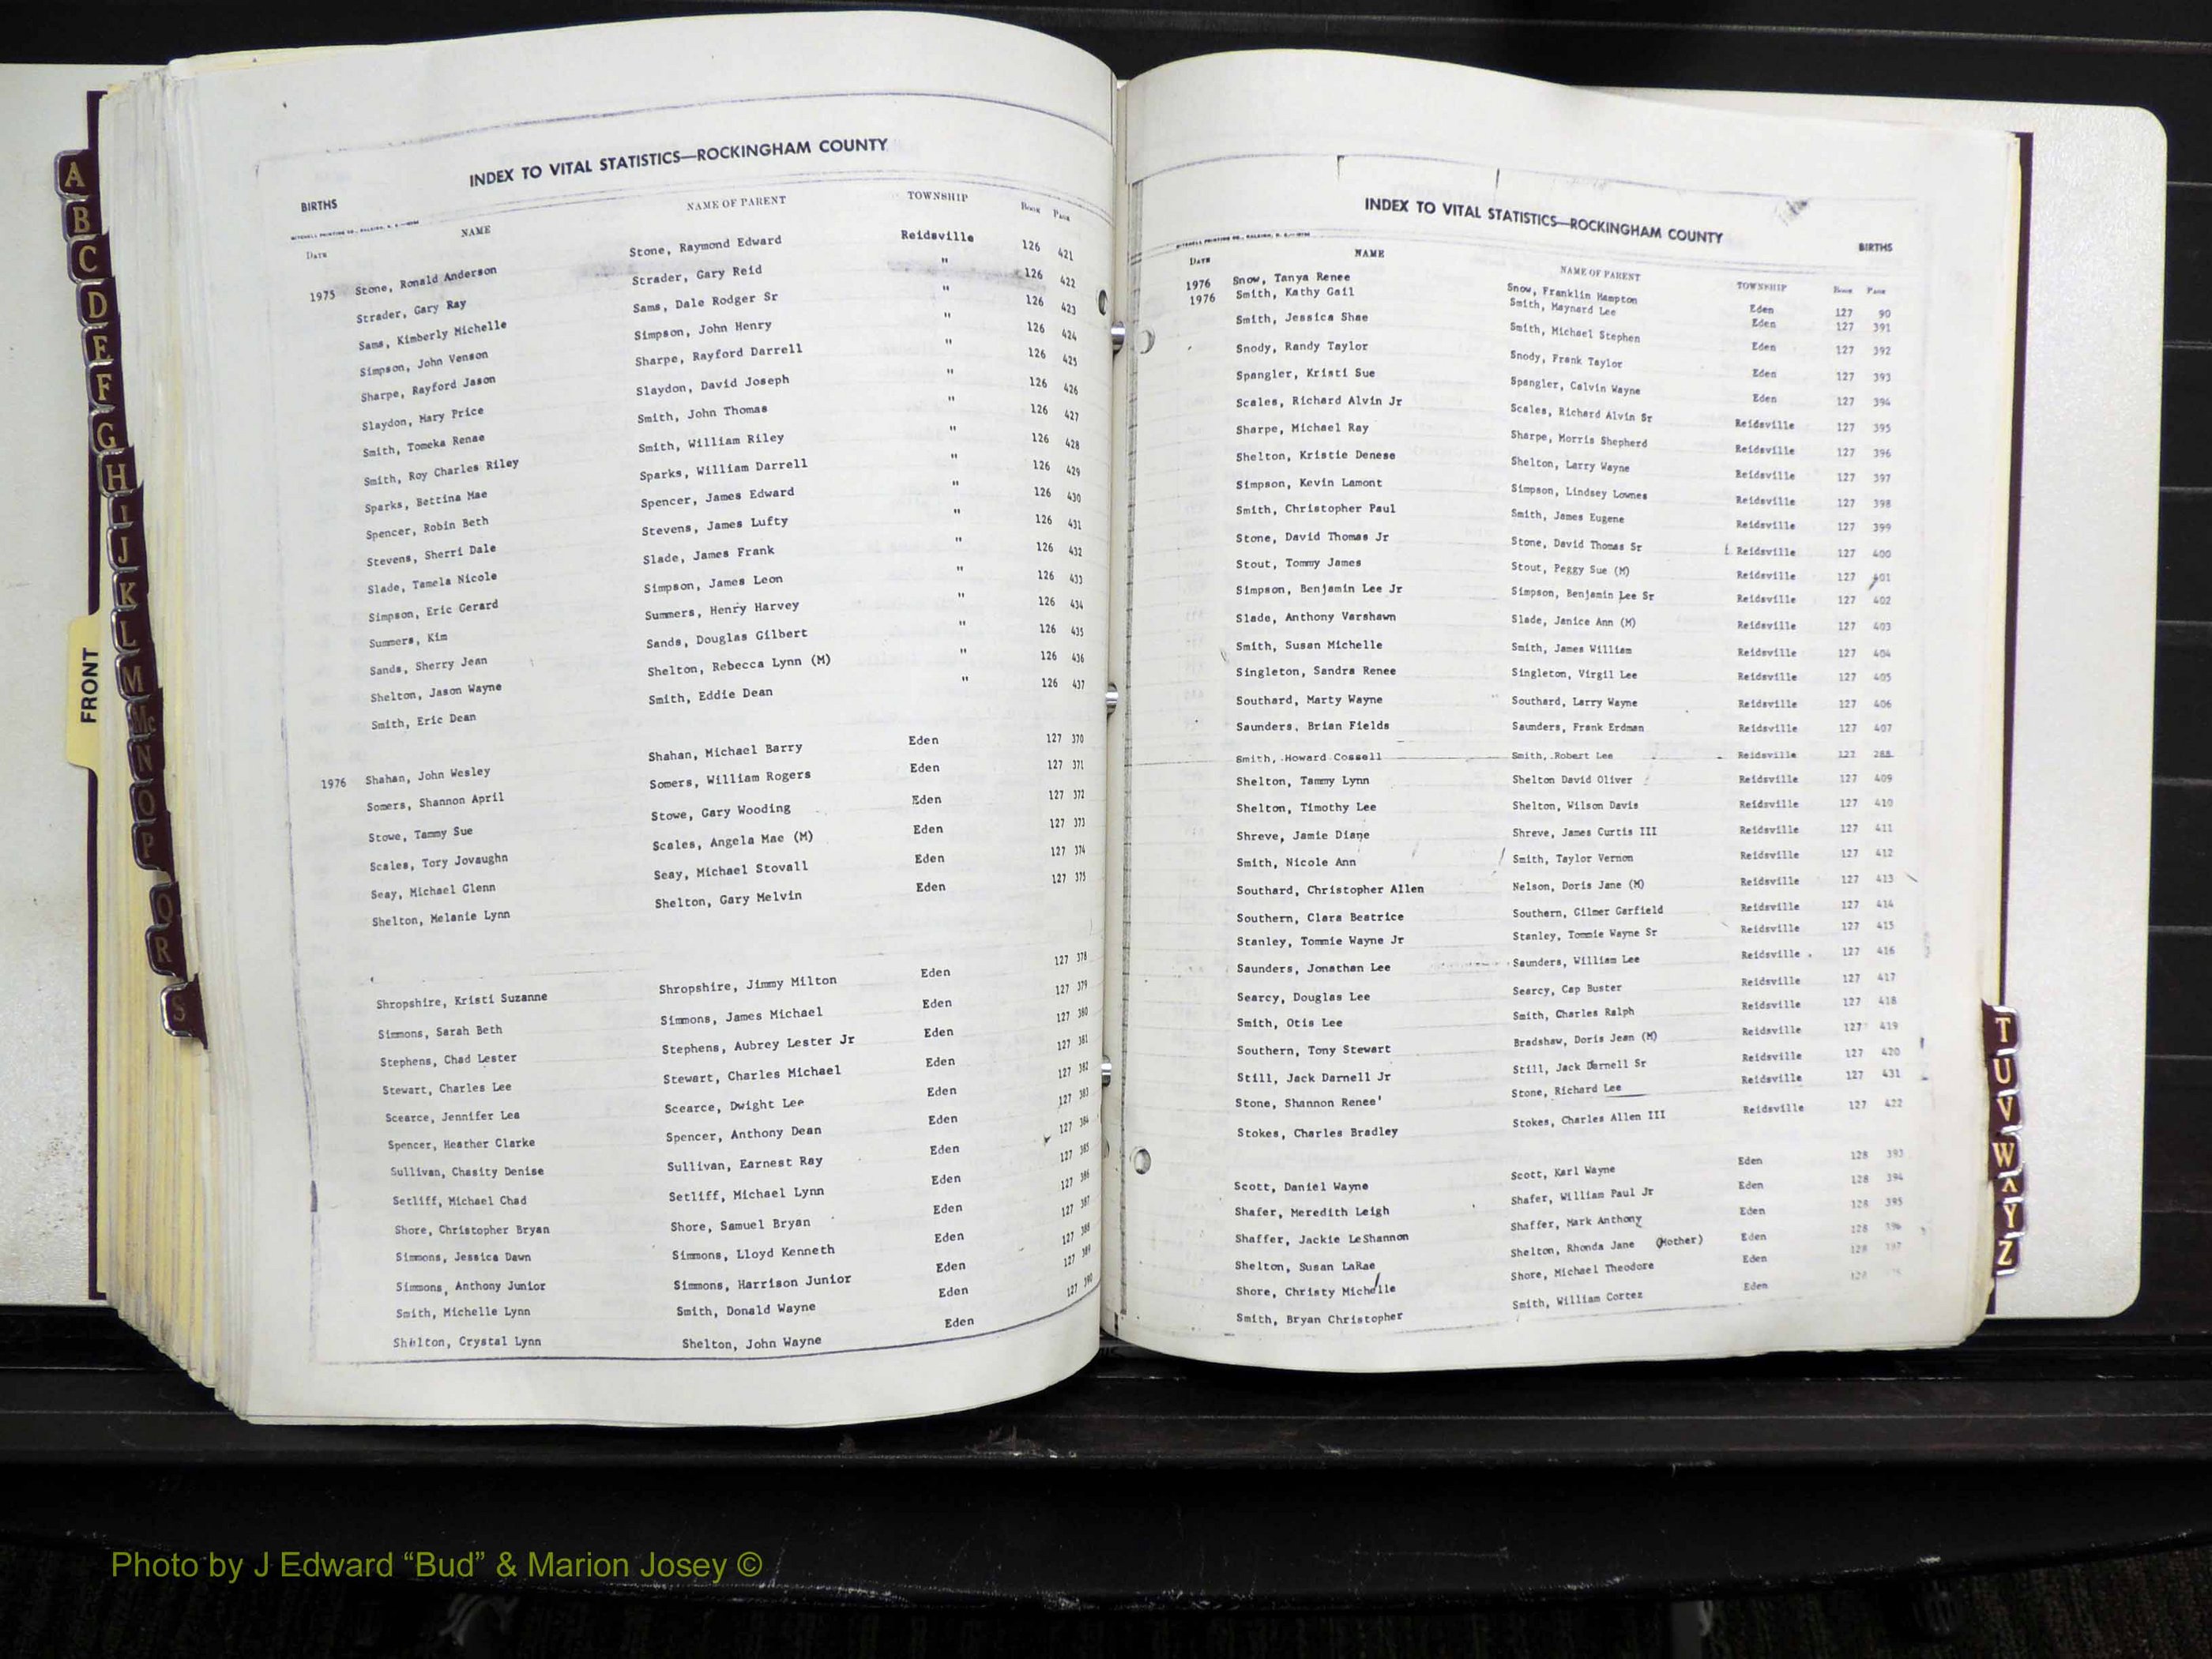 INDEX TO VITAL STATISTICS—ROCKINGHAM COUNTY
BIRTHS
MITCHELL PRINTING CO., RALEIGH, N. C.
DATE NAME NAME OF PARENT TOWNSHIP BOOK PAGE
1975 Stone, Ronald Anderson Stone, Raymond Edward Reidsville 126 421
Strader, Gary Ray Strader, Gary Reid " 126 422
Sams, Kimberly Michelle Sams, Dale Rodger Sr " 126 423
Simpson, John Venson Simpson, John Henry " 126 424
Sharpe, Rayford Jason Sharpe, Rayford Darrell " 126 425
Slaydon, Mary Price Slaydon, David Joseph " 126 426
Smith, Tomeka Renae Smith, John Thomas " 126 427
Smith, Roy Charles Riley Smith, William Riley " 126 428
Sparks, Bettina Mae Sparks, William Darrell " 126 429
Spencer, Robin Beth Spencer, James Edward " 126 430
Stevens, Sherri Dale Stevens, James Lufty " 126 431
Slade, Tamela Nicole Slade, James Frank " 126 432
Simpson, Eric Gerard Simpson, James Leon " 126 433
Summers, Kim Summers, Henry Harvey " 126 434
Sands, Sherry Jean Sands, Douglas Gilbert " 126 435
Shelton, Jason Wayne Shelton, Rebecca Lynn (M) " 126 436
Smith, Eric Dean Smith, Eddie Dean " 126 437
1976 Shahan, John Wesley Shahan, Michael Barry Eden 127 370
Somers, Shannon April Somers, William Rogers Eden 127 371
Stowe, Tammy Sue Stowe, Gary Wooding Eden 127 372
Scales, Tory Jovaughn Scales, Angela Mae (M) Eden 127 373
Seay, Michael Glenn Seay, Michael Stovall Eden 127 374
Shelton, Melanie Lynn Shelton, Gary Melvin Eden 127 375
Shropshire, Kristi Suzanne Shropshire, Jimmy Milton Eden 127 378
Simmons, Sarah Beth Simmons, James Michael Eden 127 379
Stephens, Chad Lester Stephens, Aubrey Lester Jr Eden 127 380
Stewart, Charles Lee Stewart, Charles Michael Eden 127 381
Scearce, Jennifer Lea Scearce, Dwight Lee Eden 127 382
Spencer, Heather Clarke Spencer, Anthony Dean Eden 127 383
Sullivan, Chasity Denise Sullivan, Earnest Ray Eden 127 384
Setliff, Michael Chad Setliff, Michael Lynn Eden 127 385
Shore, Christopher Bryan Shore, Samuel Bryan Eden 127 386
Simmons, Jessica Dawn Simmons, Lloyd Kenneth Eden 127 387
Simmons, Anthony Junior Simmons, Harrison Junior Eden 127 388
Smith, Michelle Lynn Smith, Donald Wayne Eden 127 389
Shelton, Crystal Lynn Shelton, John Wayne Eden 127 390
INDEX TO VITAL STATISTICS—ROCKINGHAM COUNTY
BIRTHS
MITCHELL PRINTING CO., RALEIGH, N. C.
DATE NAME NAME OF PARENT TOWNSHIP BOOK PAGE
1976 Snow, Tanya Renee Snow, Franklin Hampton Eden 127 90
1976 Smith, Kathy Gail Smith, Maynard Lee Eden 127 391
Smith, Jessica Shae Smith, Michael Stephen Eden 127 392
Snody, Randy Taylor Snody, Frank Taylor Eden 127 393
Spangler, Kristi Sue Spangler, Calvin Wayne Eden 127 394
Scales, Richard Alvin Jr Scales, Richard Alvin Sr Reidsville 127 395
Sharpe, Michael Ray Sharpe, Morris Shepherd Reidsville 127 396
Shelton, Kristie Denese Shelton, Larry Wayne Reidsville 127 397
Simpson, Kevin Lamont Simpson, Lindsey Lownes Reidsville 127 398
Smith, Christopher Paul Smith, James Eugene Reidsville 127 399
Stone, David Thomas Jr Stone, David Thomas Sr Reidsville 127 400
Stout, Tommy James Stout, Peggy Sue (M) Reidsville 127 401
Simpson, Benjamin Lee Jr Simpson, Benjamin Lee Sr Reidsville 127 402
Slade, Anthony Varshawn Slade, Janice Ann (M) Reidsville 127 403
Smith, Susan Michelle Smith, James William Reidsville 127 404
Singleton, Sandra Renee Singleton, Virgil Lee Reidsville 127 405
Southard, Marty Wayne Southard, Larry Wayne Reidsville 127 406
Saunders, Brian Fields Saunders, Frank Erdman Reidsville 127 407
Smith, Howard Cossell Smith, Robert Lee Reidsville 122 288
Shelton, Tammy Lynn Shelton David Oliver Reidsville 127 409
Shelton, Timothy Lee Shelton, Wilson Davis Reidsville 127 410
Shreve, Jamie Diane Shreve, James Curtis III Reidsville 127 411
Smith, Nicole Ann Smith, Taylor Vernon Reidsville 127 412
Southard, Christopher Allen Nelson, Doris Jane (M) Reidsville 127 413
Southern, Clara Beatrice Southern, Gilmer Garfield Reidsville 127 414
Stanley, Tommie Wayne Jr Stanley, Tommie Wayne Sr Reidsville 127 415
Saunders, Jonathan Lee Saunders, William Lee Reidsville 127 416
Searcy, Douglas Lee Searcy, Cap Buster Reidsville 127 417
Smith, Otis Lee Smith, Charles Ralph Reidsville 127 418
Southern, Tony Stewart Bradshaw, Doris Jean (M) Reidsville 127 419
Still, Jack Darnell Jr Still, Jack Darnell Sr Reidsville 127 420
Stone, Shannon Renee' Stone, Richard Lee Reidsville 127 431
Stokes, Charles Bradley Stokes, Charles Allen III Reidsville 127 422
Scott, Daniel Wayne Scott, Karl Wayne Eden 128 393
Shafer, Meredith Leigh Shafer, William Paul Jr Eden 128 394
Shaffer, Jackie LeShannon Shaffer, Mark Anthony Eden 128 395
Shelton, Susan LaRae Shelton, Rhonda Jane (Mother) Eden 128 396
Shore, Christy Michelle Shore, Michael Theodore Eden 128 397
Smith, Bryan Christopher Smith, William Cortez Eden 128
A
B
C
D
E
F
G
H
I
J
K
L
M
Mc
N
O
P
Q
R
S
FRONT
T
U
V
W
X
Y
Z
Photo by J Edward “Bud” & Marion Josey ©